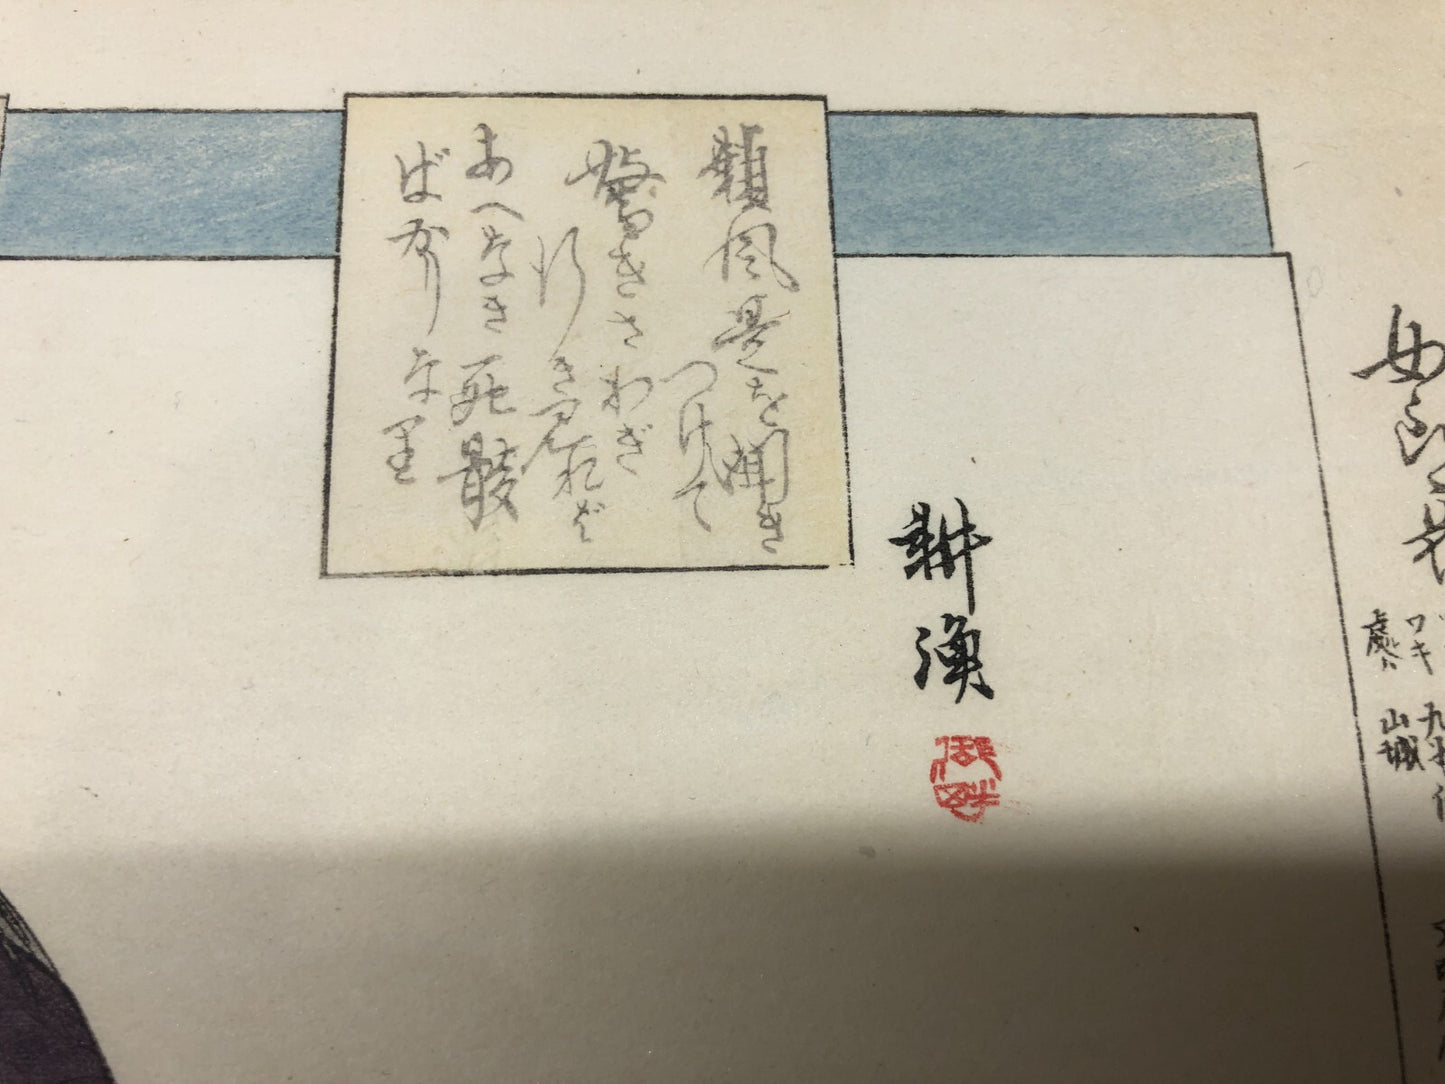 女郎花
ワキ 九州
山城
耕漁
頼風是を聞き
つけて
驚きさわぎ
行き見れば
あへなき死骸
ばかりなり